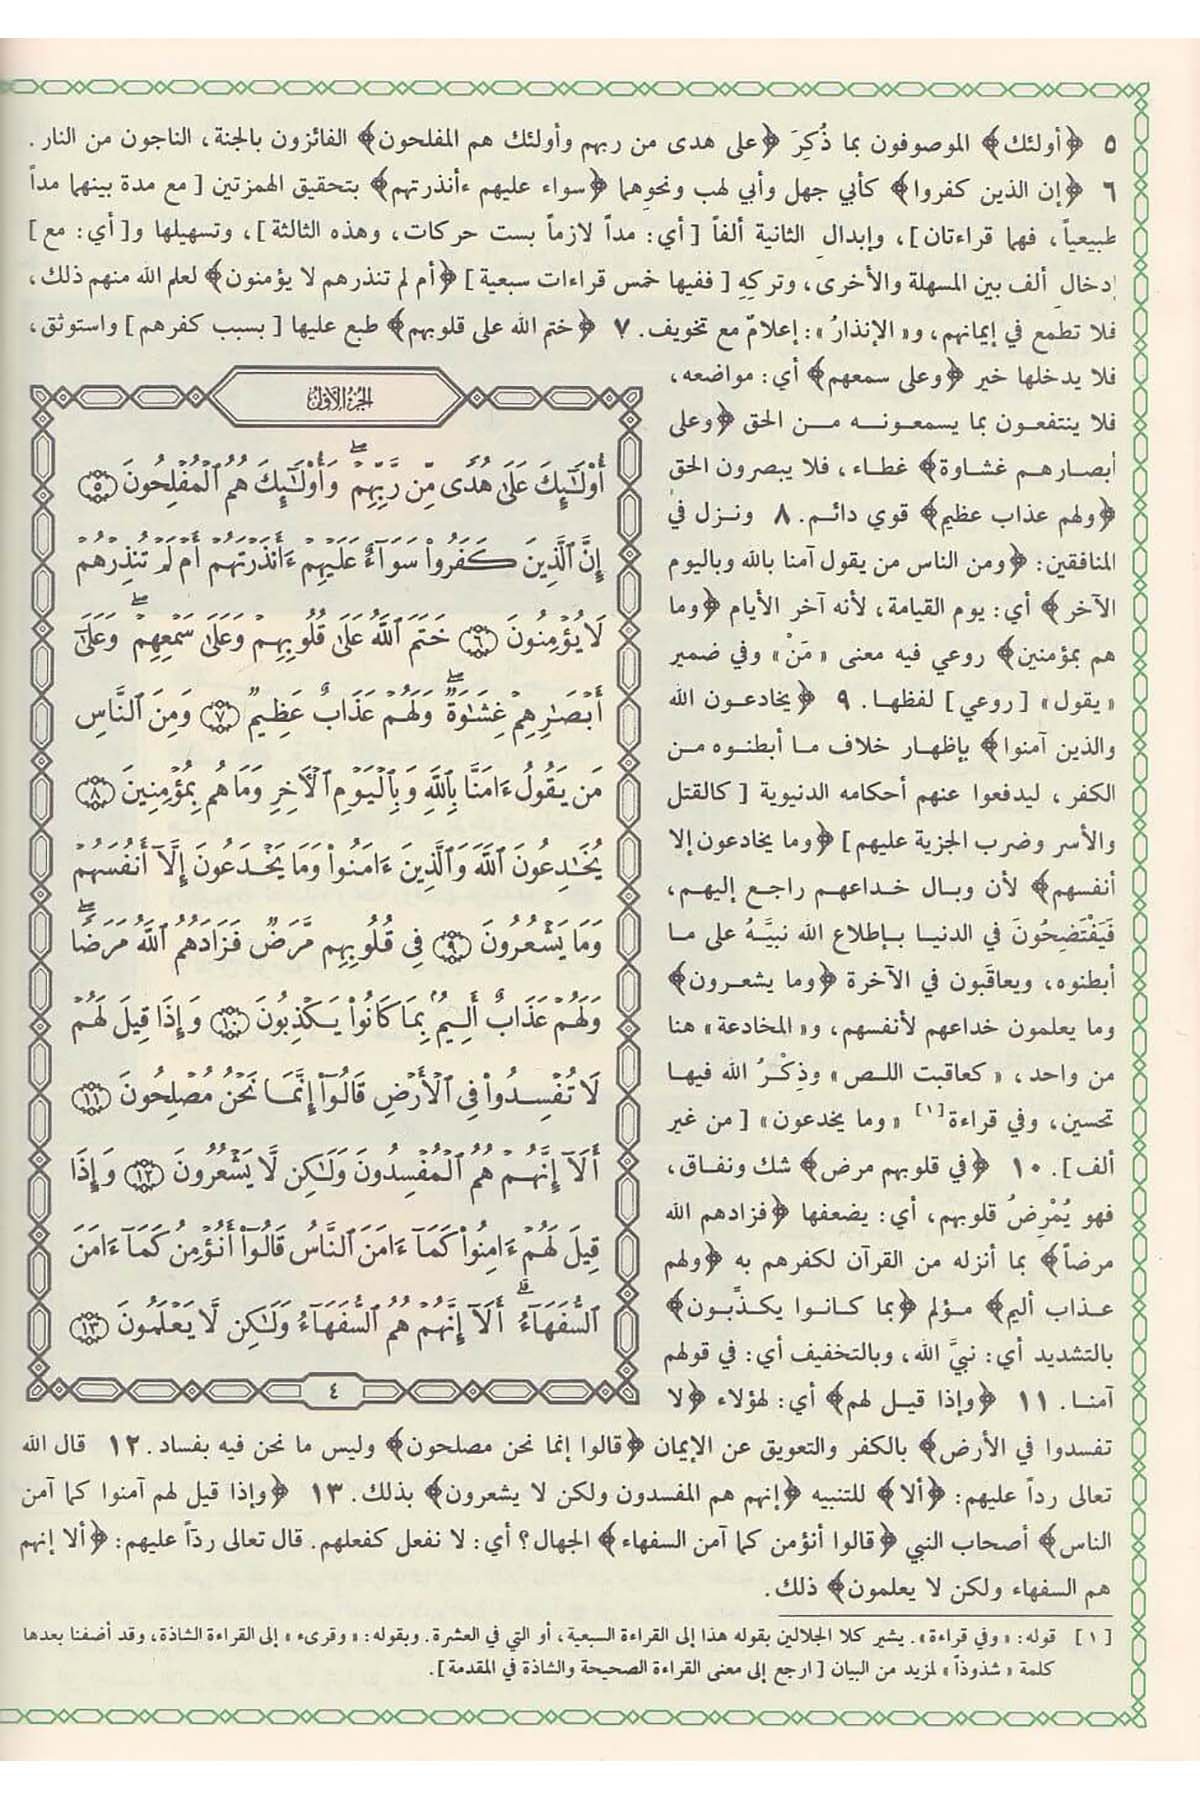 ٥ ﴿أولئك﴾ الموصوفون بما ذُكِرَ ﴿على هدى من ربهم وأولئك هم المفلحون﴾ الفائزون بالجنة، الناجون من النار.
٦ ﴿إن الذين كفروا﴾ كأبي جهل وأبي لهب ونحوهما ﴿سواء عليهم ءأنذرتهم﴾ بتحقيق الهمزتين [مع مدة بينهما مداً
طبيعياً، فهما قراءتان]، وإبدالِ الثانية ألفاً [أي: مداً لازماً بست حركات، وهذه الثالثة]، وتسهيلها و[أي: مع]
إدخالِ ألف بين المسهلة والأخرى، وتركِهِ [ففيها خمس قراءات سبعية] ﴿أم لم تنذرهم لا يؤمنون﴾ لعلم الله منهم ذلك،
فلا تطمع في إيمانهم، و«الإنذارُ»: إعلامٌ مع تخويف. ٧ ﴿ختم الله على قلوبهم﴾ طبع عليها [بسبب كفرهم] واستوثق،
فلا يدخلها خير ﴿وعلى سمعهم﴾ أي: مواضعه،
فلا ينتفعون بما يسمعونه من الحق ﴿وعلى
أبصارهم غشاوة﴾ غطاء، فلا يبصرون الحق
﴿ولهم عذاب عظيم﴾ قوي دائم. ٨ ونزل في
المنافقين: ﴿ومن الناس من يقول آمنا بالله وباليوم
الآخر﴾ أي: يوم القيامة، لأنه آخر الأيام ﴿وما
هم بمؤمنين﴾ روعي فيه معنى «مَنْ» وفي ضمير
«يقول» [روعي] لفظها. ٩ ﴿يخادعون الله
والذين آمنوا﴾ بإظهار خلاف ما أبطنوه من
الكفر، ليدفعوا عنهم أحكامه الدنيوية [كالقتل
والأسر وضرب الجزية عليهم] ﴿وما يخادعون إلا
أنفسهم﴾ لأن وبال خداعهم راجع إليهم،
فَيَفْتَضِحُونَ في الدنيا بإطلاع الله نبيَّهُ على ما
أبطنوه، ويعاقَبون في الآخرة ﴿وما يشعرون﴾
وما يعلمون خداعهم لأنفسهم، و«المخادعة» هنا
من واحد، «كعاقبت اللص» وذِكْرُ الله فيها
تحسين، وفي قراءة[١] «وما يخدعون» [من غير
ألف]. ١٠ ﴿في قلوبهم مرض﴾ شك ونفاق،
فهو يُمْرِضُ قلوبهم، أي: يضعفها ﴿فزادهم الله
مرضاً﴾ بما أنزله من القرآن لكفرهم به ﴿ولهم
عذاب أليم﴾ مؤلم ﴿بما كانوا يكذِّبون﴾
بالتشديد أي: نبيَّ الله، وبالتخفيف أي: في قولهم
آمنا. ١١ ﴿وإذا قيل لهم﴾ أي: لهؤلاء ﴿لا
تفسدوا في الأرض﴾ بالكفر والتعويق عن الإيمان ﴿قالوا إنما نحن مصلحون﴾ وليس ما نحن فيه بفساد. ١٢ قال الله
تعالى رداً عليهم: ﴿ألا﴾ للتنبيه ﴿إنهم هم المفسدون ولكن لا يشعرون﴾ بذلك. ١٣ ﴿وإذا قيل لهم آمنوا كما آمن
الناس﴾ أصحاب النبي ﴿قالوا أنؤمن كما آمن السفهاء﴾ الجهال؟ أي: لا نفعل كفعلهم. قال تعالى ردّاً عليهم: ﴿ألا إنهم
هم السفهاء ولكن لا يعلمون﴾ ذلك.
الجزء الأول
أُوْلَٰٓئِكَ عَلَىٰ هُدًى مِّن رَّبِّهِمْۖ وَأُوْلَٰٓئِكَ هُمُ ٱلْمُفْلِحُونَ ٥
إِنَّ ٱلَّذِينَ كَفَرُوا۟ سَوَآءٌ عَلَيْهِمْ ءَأَنذَرْتَهُمْ أَمْ لَمْ تُنذِرْهُمْ
لَا يُؤْمِنُونَ ٦ خَتَمَ ٱللَّهُ عَلَىٰ قُلُوبِهِمْ وَعَلَىٰ سَمْعِهِمْۖ وَعَلَىٰٓ
أَبْصَٰرِهِمْ غِشَٰوَةٌۖ وَلَهُمْ عَذَابٌ عَظِيمٌ ٧ وَمِنَ ٱلنَّاسِ
مَن يَقُولُ ءَامَنَّا بِٱللَّهِ وَبِٱلْيَوْمِ ٱلْءَاخِرِ وَمَا هُم بِمُؤْمِنِينَ ٨
يُخَٰدِعُونَ ٱللَّهَ وَٱلَّذِينَ ءَامَنُوا۟ وَمَا يَخْدَعُونَ إِلَّآ أَنفُسَهُمْ
وَمَا يَشْعُرُونَ ٩ فِى قُلُوبِهِم مَّرَضٌ فَزَادَهُمُ ٱللَّهُ مَرَضًاۖ
وَلَهُمْ عَذَابٌ أَلِيمٌۢ بِمَا كَانُوا۟ يَكْذِبُونَ ١٠ وَإِذَا قِيلَ لَهُمْ
لَا تُفْسِدُوا۟ فِى ٱلْأَرْضِ قَالُوٓا۟ إِنَّمَا نَحْنُ مُصْلِحُونَ ١١
أَلَآ إِنَّهُمْ هُمُ ٱلْمُفْسِدُونَ وَلَٰكِن لَّا يَشْعُرُونَ ١٢ وَإِذَا
قِيلَ لَهُمْ ءَامِنُوا۟ كَمَآ ءَامَنَ ٱلنَّاسُ قَالُوٓا۟ أَنُؤْمِنُ كَمَآ ءَامَنَ
ٱلسُّفَهَآءُۗ أَلَآ إِنَّهُمْ هُمُ ٱلسُّفَهَآءُ وَلَٰكِن لَّا يَعْلَمُونَ ١٣
٤
[١] قوله: «وفي قراءة». يشير كلا الجلالين بقوله هذا إلى القراءة السبعية، أو التي في العشرة. وبقوله: «وقرىء» إلى القراءة الشاذة، وقد أضفنا بعدها
كلمة «شذوذاً» لمزيد من البيان [ارجع إلى معنى القراءة الصحيحة والشاذة في المقدمة].